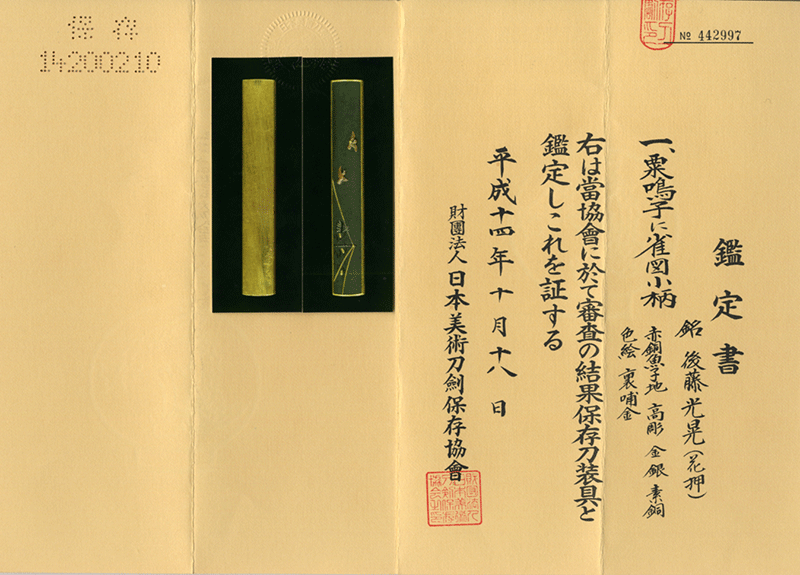 鑑定書
一、粟鳴子に雀図小柄
銘 後藤光晃(花押)
赤銅魚子地 高彫 金銀素銅
色絵 裏哺金
右は當協會に於て審査の結果保存刀装具と
鑑定しこれを証する
平成十四年十月十八日
財團法人 日本美術刀劍保存協會
№ 442997
保存
14200210